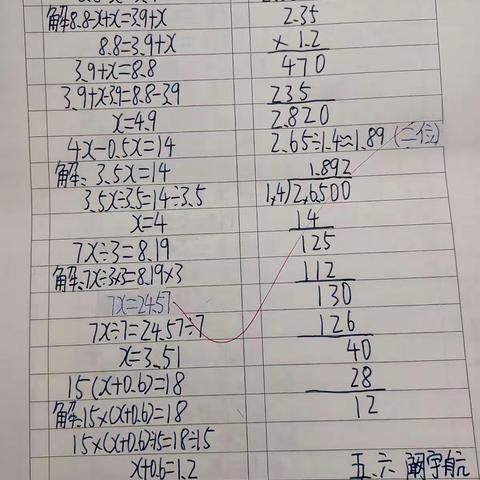 解8.8-x+x=3.9+x
8.8=3.9+x
3.9+x=8.8
3.9+x-3.9=8.8-3.9
x=4.9
4x-0.5x=14
解:3.5x=14
3.5x÷3.5=14÷3.5
x=4
7x÷3=8.19
解:7x÷3×3=8.19×3
7x=24.57
7x÷7=24.57÷7
x=3.51
15(x+0.6)=18
解:15×(x+0.6)=18
15×(x+0.6)÷15=18÷15
x+0.6=1.2
2.35
×1.2
470
235
2.820
2.65÷1.4≈1.89(二位)
1.892
1.4)2.6500
14
125
112
130
126
40
28
12
五、六